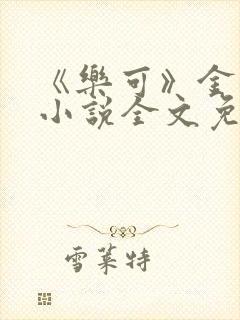 《樂可》金
小說全文免
雪萊特